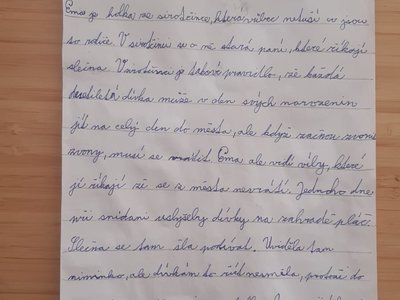 Ema je holka ze sirotčince, která vůbec netuší co jsou
to rodiče. V sirotčinci se o ně stará paní, které říkají
slečna. V sirotčinci je takové pravidlo, že každá
desetiletá dívka může v den svých narozenin
jít na celý den do města, ale když začnou zvonit
zvony, musí se vrátit. Ema ale vidí víly, které
jí říkají že se z města nevrátí. Jednoho dne
při snídani uslyšely dívky na zahradě pláč.
Slečna se tam šla podívat. Uviděla tam
miminko, ale dívkám to říct nesměla, protože do